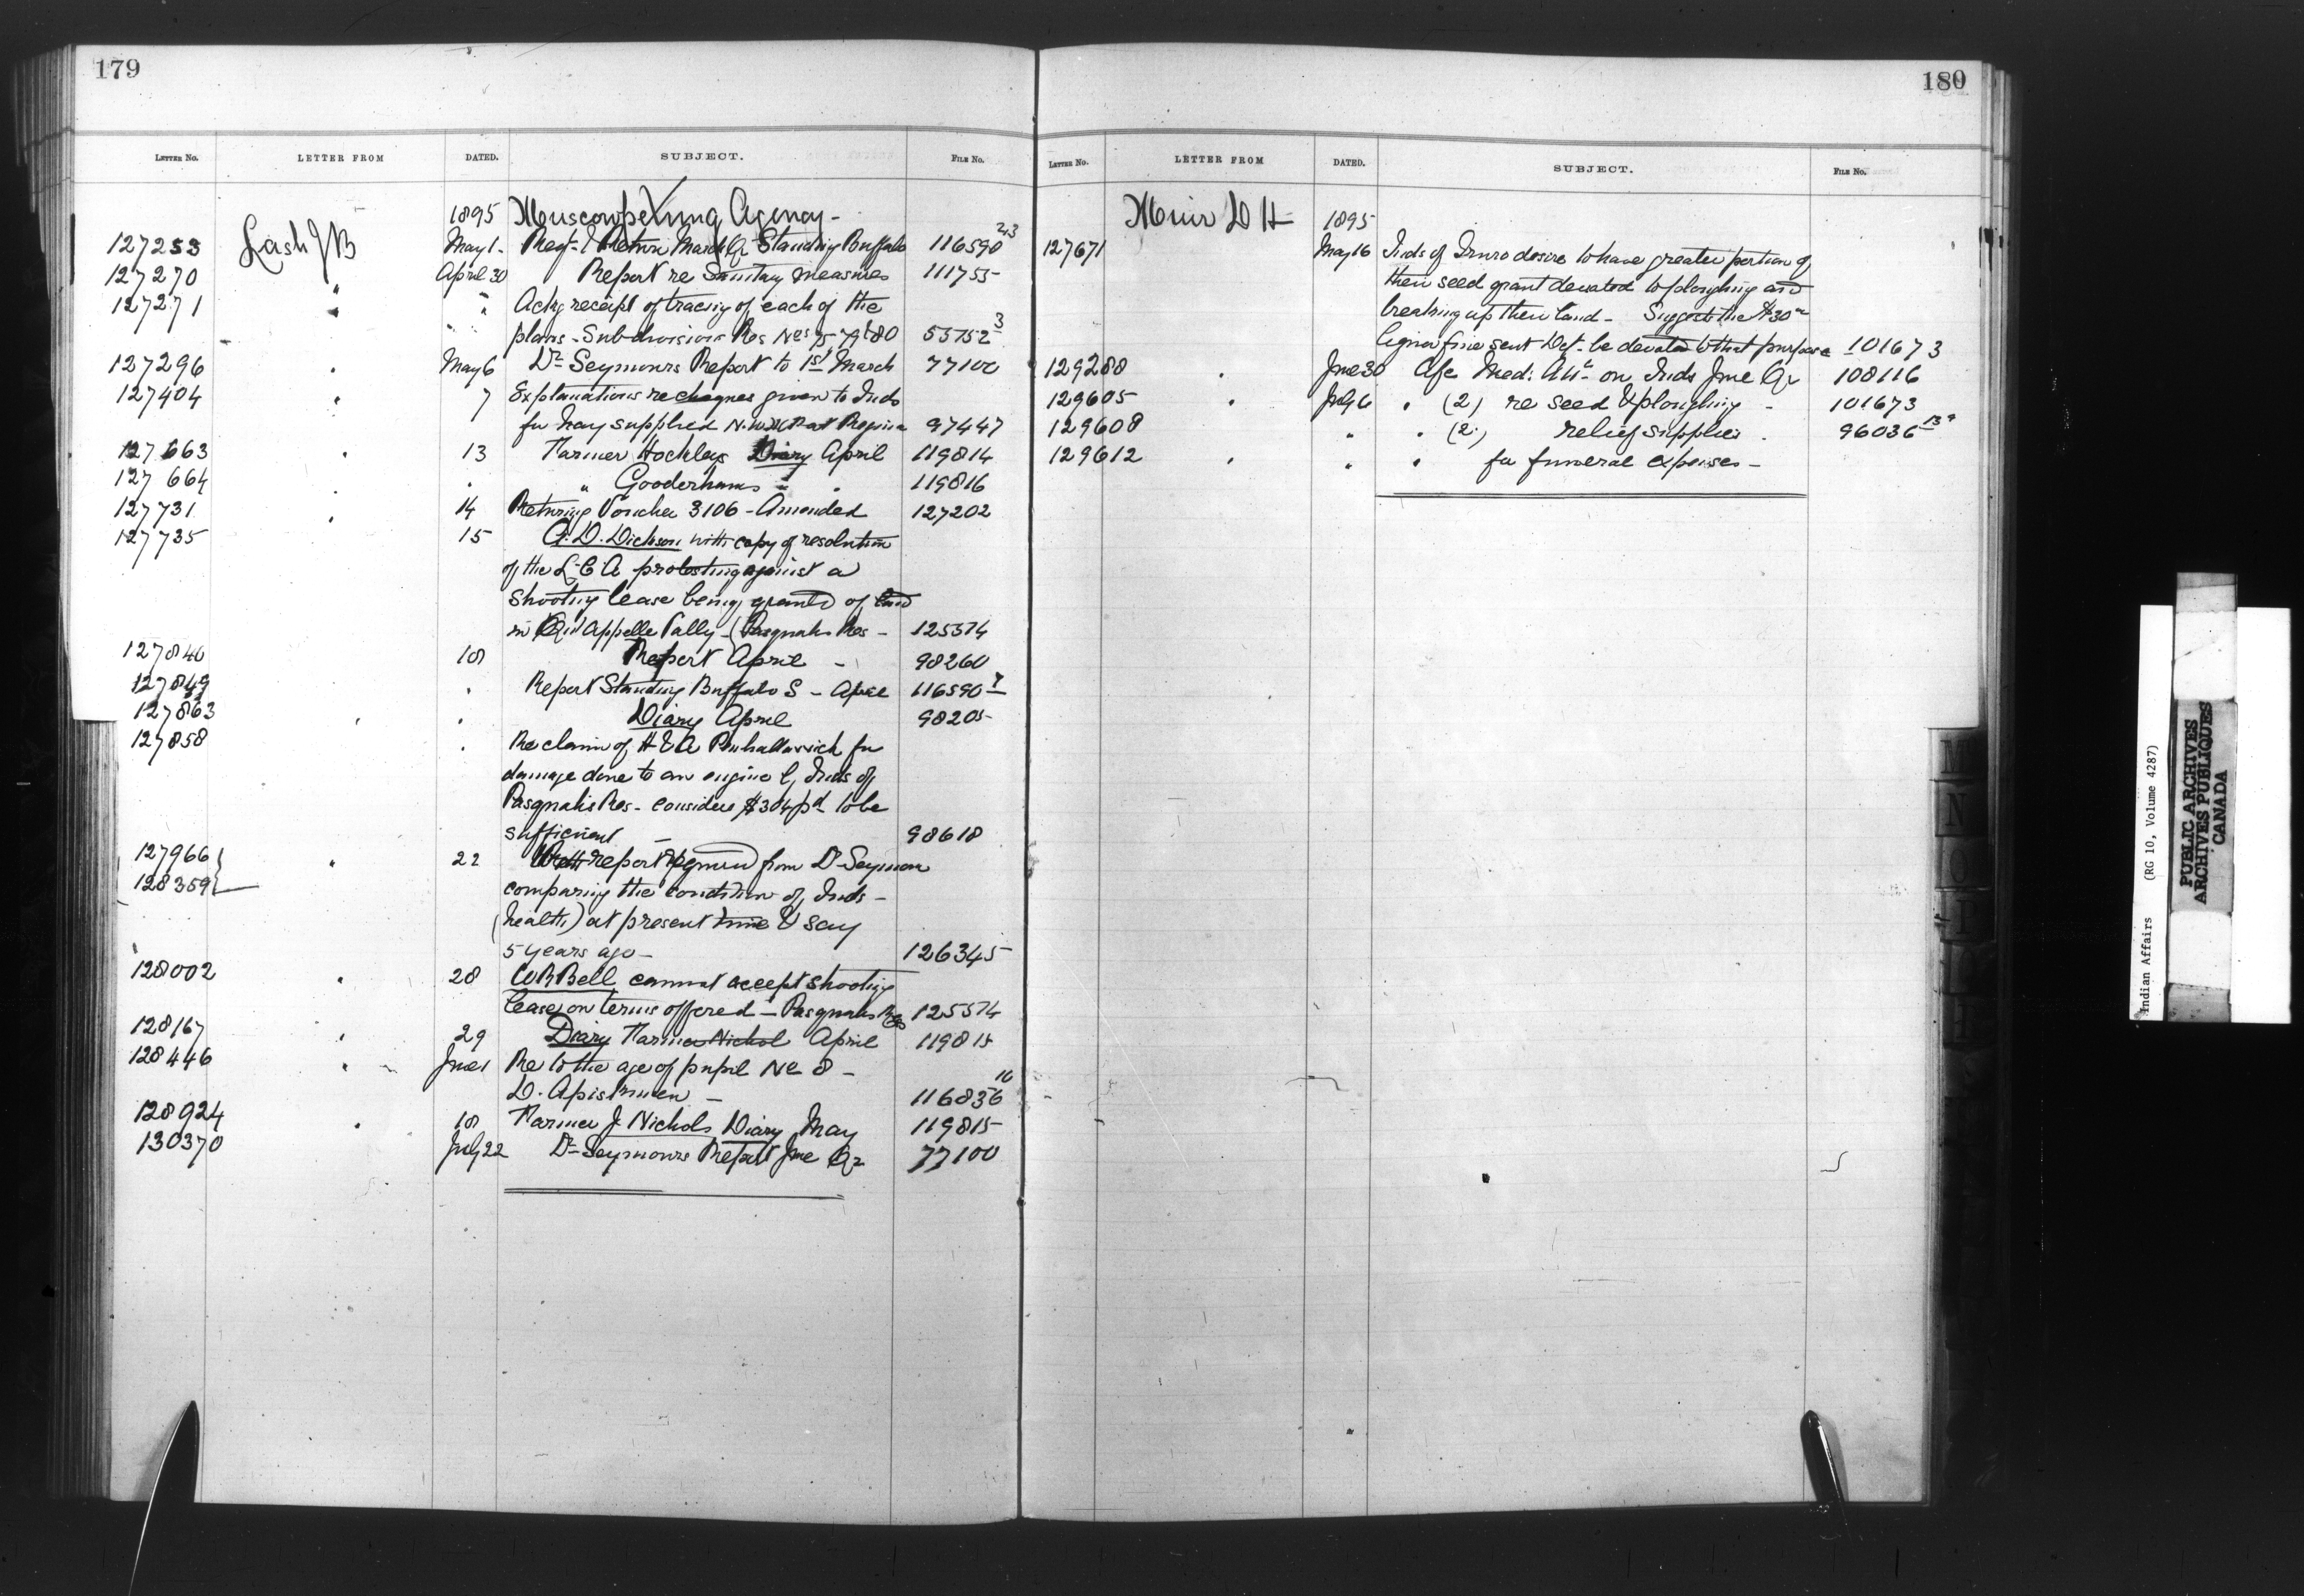 179
LETTER No. LETTER FROM DATED. SUBJECT. FILE No.
1895 Muscowpetung Agency -
127253 Lash J B May 1. Reqs & Return March Qr Standing Buffalo 116590 2/3
127270 " April 30 Report re Sanitary measures 111755
127271 " " Ackg receipt of tracing of each of the
plans - Subdivision Res Nos 75 79 & 80 55752 3
127296 " May 6 Dr Seymours Report to 1st March 77100
127404 " 7 Explanations re cheques given to Inds
for hay supplied N.W.M.P at Regina 97447
127663 " 13 Farmer Hockleys Diary April 119814
127664 " " " Gooderhams " " 119816
127731 " 14 Returning Voucher 3106 - Amended 127202
127735 15 G. D. Dickson with copy of resolution
of the L. C A protesting against a
shooting lease being granted of land
in Qu'Appelle Vally - (Pasquahs Res - 125574
127840 18 Report April - 98260
127849 " Report Standing Buffalo S - April 116590
127863 " " Diary April 98205
127858 " Re claim of H & A for
damage done to an engine by Inds of
Pasquahs Res - considers $304 pd to be
sufficient - 98618
127966 " 22 report from Dr Seymour
128359 comparing the condition of Inds -
(health) at present time & say
5 years ago - 126345
128002 " 28 W R Bell cannot accept shooting
lease on terms offered - Pasquahs Res 125574
128167 " 29 Diary Farmer Nichol April 119815
128446 " June 1 Re to the age of pupil No 8 -
D. - 116836 10
128924 " 18 Farmer J Nichols Diary May 119815
130370 July 22 Dr Seymours Report June Qr 77100
180
LETTER No. LETTER FROM DATED. SUBJECT. FILE No.
Muir D H 1895
127671 May 16 Inds of Truro desire to have greater portion of
their seed grant devoted to ploughing and
breaking up their land - Suggests the $30
liquor fine sent Dept be devoted to that purpose 101673
129288 " June 30 a/c Med: Att: on Inds June Qr 108116
129605 " July 6 " (2) re seed & ploughing - 101673
129608 " " (2) relief supplies - 96036
129612 " " " for funeral expenses -
M
N
O
P
Indian Affairs (RG 10, Volume 4287)
PUBLIC ARCHIVES
ARCHIVES PUBLIQUES
CANADA